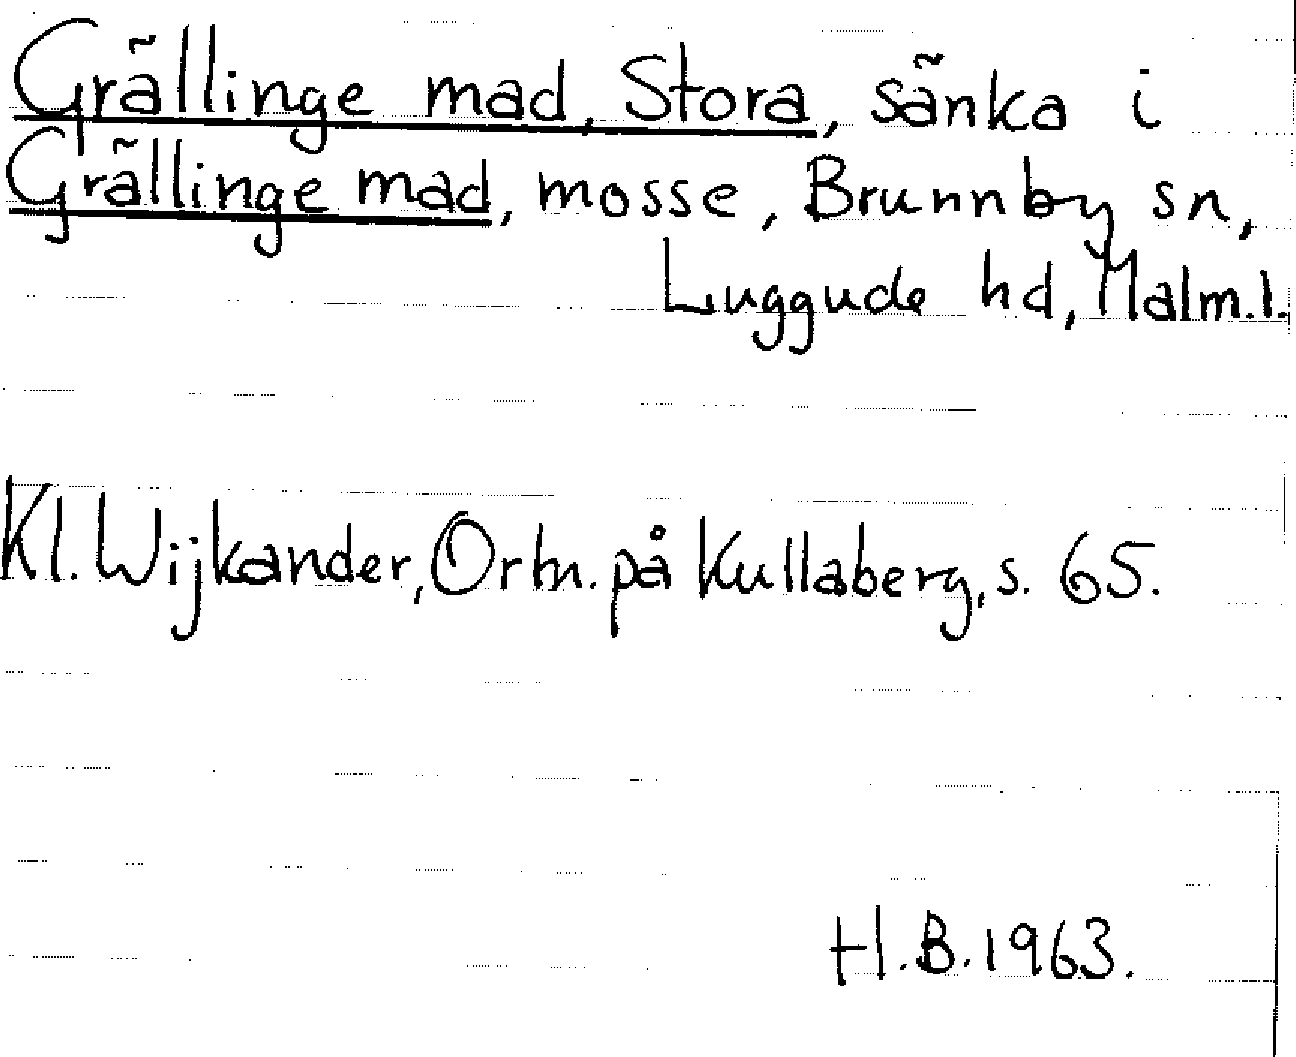 Grällinge mad, Stora, sänka i
Grällinge mad, mosse, Brunnby sn,
Luggude hd, Malm.l.
Kl. Wijkander, Ortn. på Kullaberg, s. 65.
H.B. 1963.